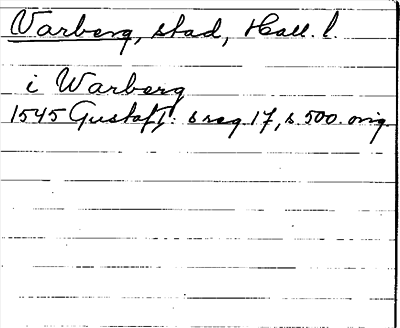 Varberg, stad, Hall. l.
i Warberg
1545 Gustaf I: s reg 17, s. 500. orig.